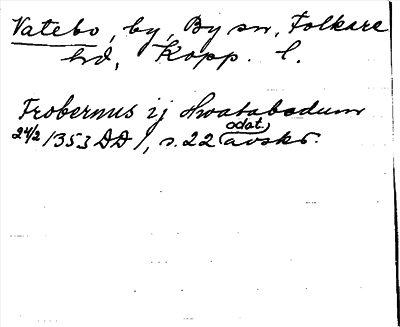 Vatebo, by, By sn, Folkare
hd, Kopp. l.
Frobernus ij hwatabodum
24/2 1353 DD 1, s. 22 (odat.) avskr.